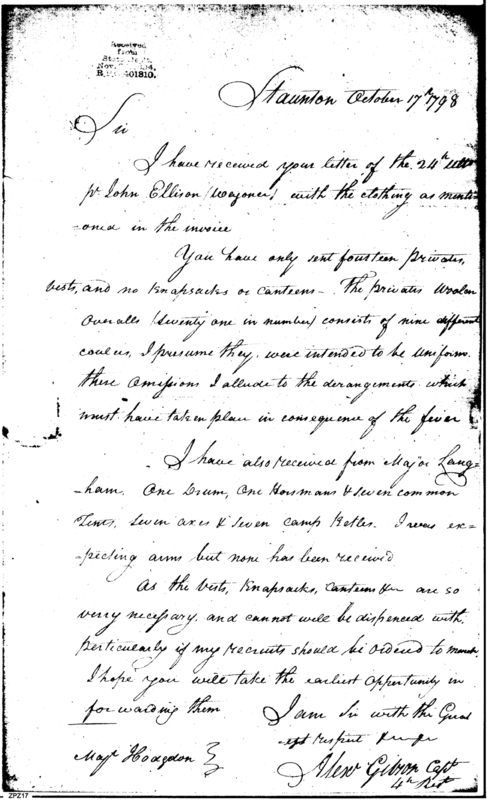 Received
from
State
Nov.
B. 401810.
Staunton October 17th 1798
Sir
I have received your letter of the 24th ulto
pr John Ellison (Wagoner) with the clothing as menti
-oned in the invoice
You have only sent fourteen privates,
vests, and no Knapsacks or Canteens - The privates Woolen
Overalls (seventy one in number) consists of nine different
coulers, I presume they were intended to be uniform
these Omissions I allude to the derangements which
must have taken place in consequence of the fever
I have also received from Major Lang-
-ham. One Drum, One Horsmans & seven common
Tents, seven axes & seven camp Ketles. I was ex-
-pecting arms but none has been received
As the Vests, Knapsacks, Canteens &c are so
verry necessary, and cannot well be dispenced with,
particularly if my recruits should be ordered to march,
I hope you will take the earliest Opportunity in
forwarding them
I am Sir with the Great
est respect
Majr Hodgdon
Alexr Gibson Capt
4th Regt
ZPZ17